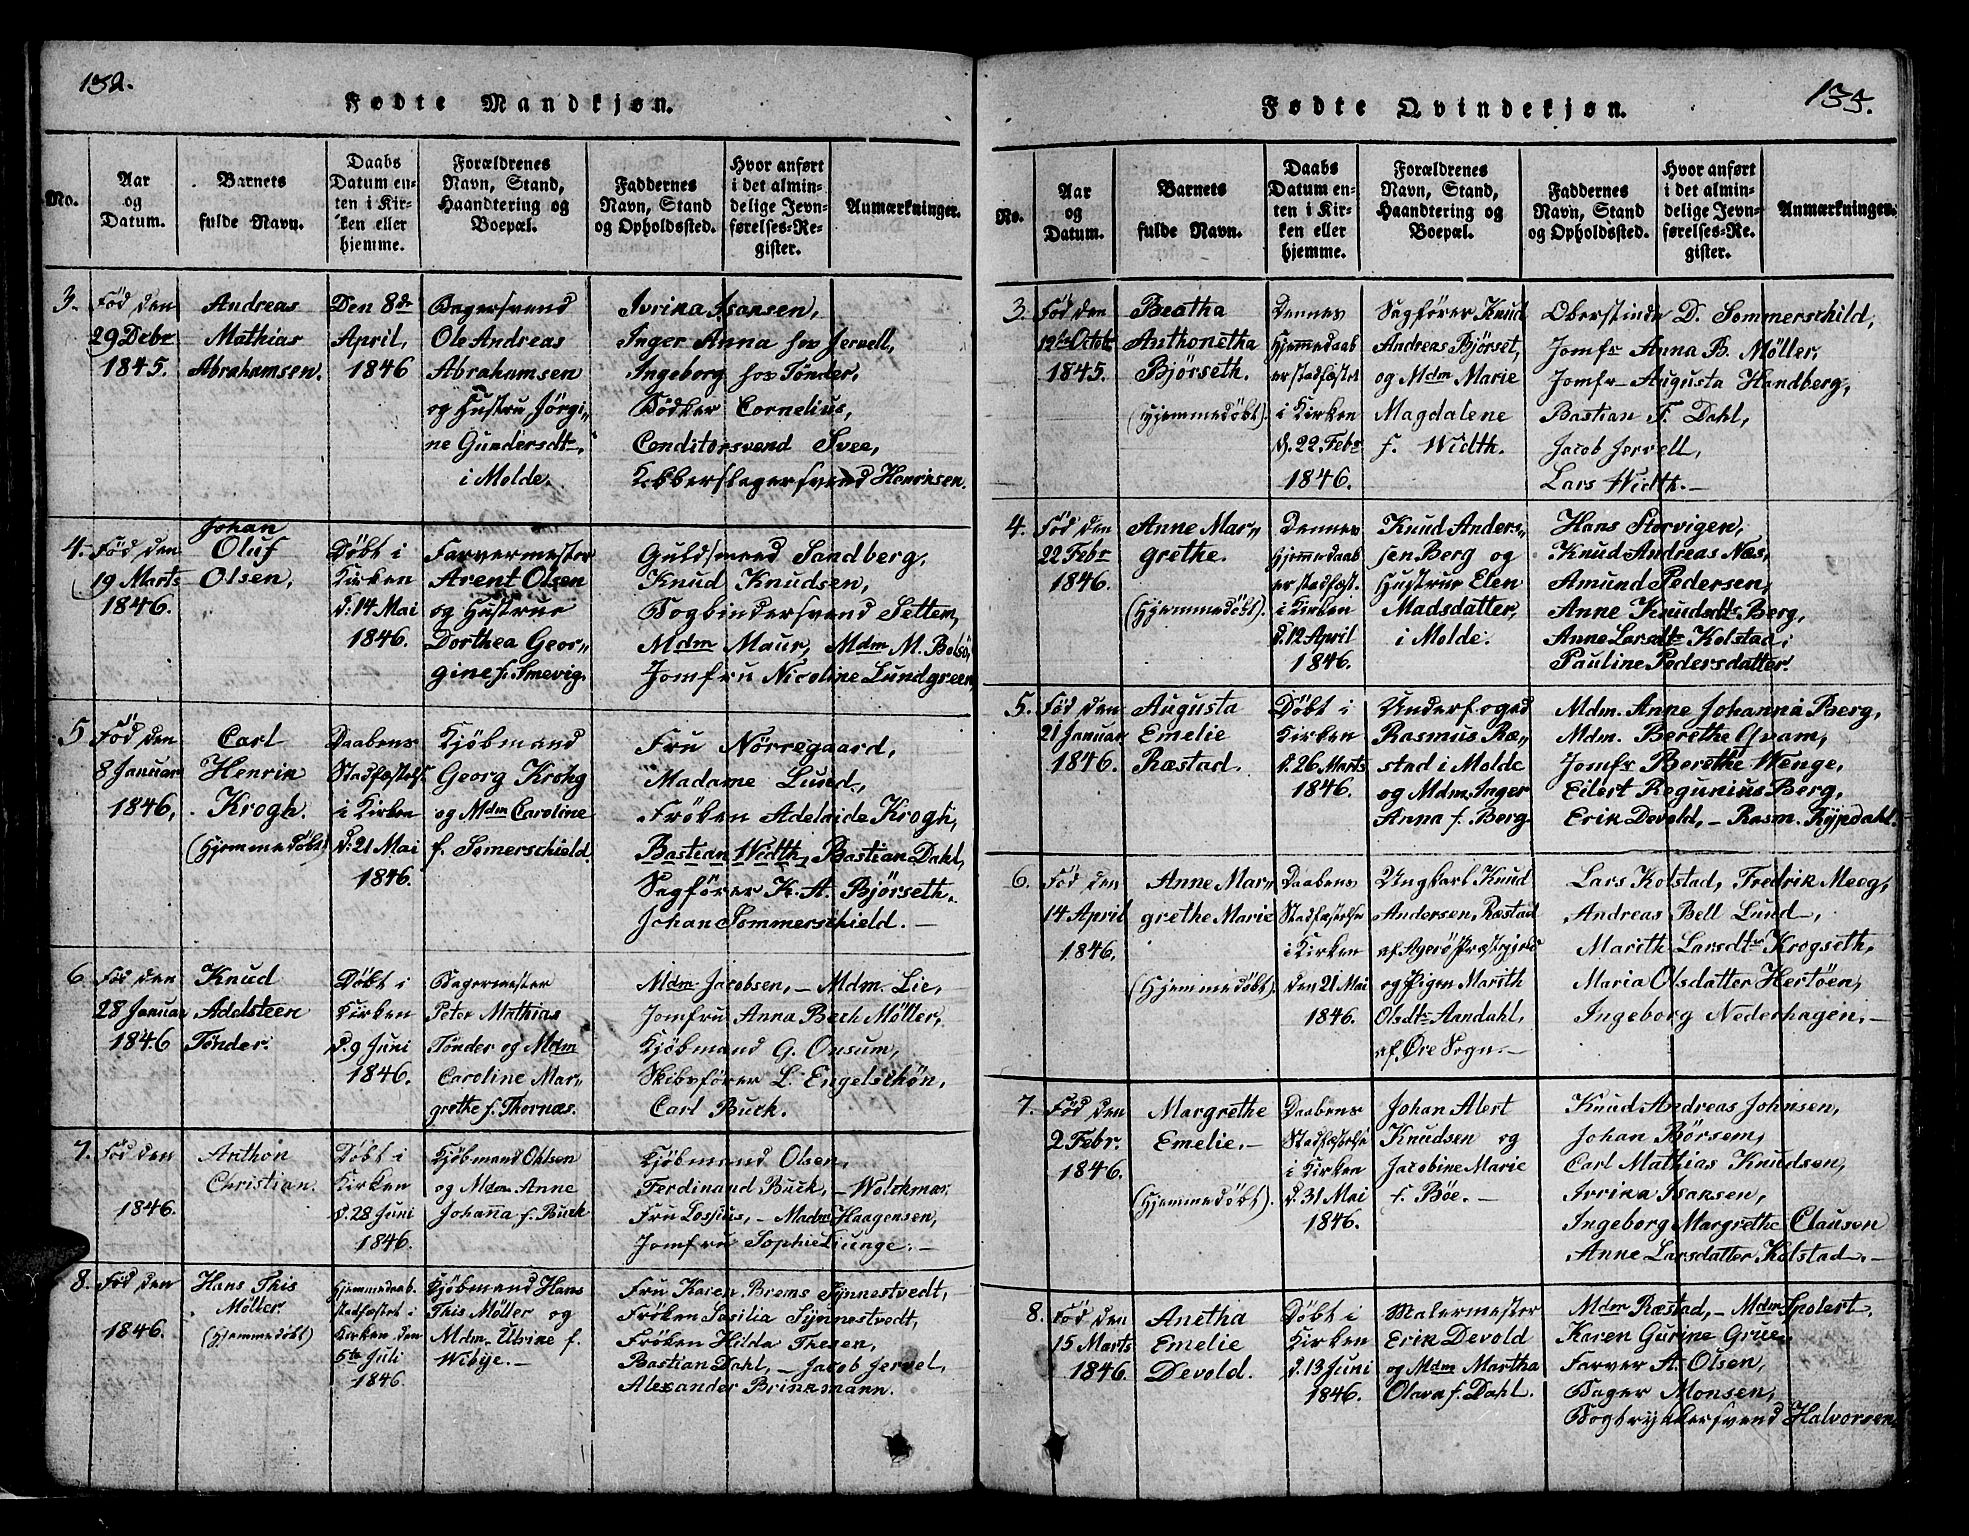 132.
Fødte Mandkjøn.
No.
Aar
og
Datum.
Barnets
fulde Navn.
Daabs
Datum en-
ten i Kir-
ken eller
hjemme.
Forældrenes
Navn, Stand,
Haandtering og
Boepæl.
Faddernes
Navn, Stand
og Opholdssted.
Hvor anført
i det almin-
delige Jevn-
førelses-Re-
gister.
Anmærkninger.
3.
Fød den
29 Debr
1845.
Andreas
Mathias
Abrahamsen.
Den 8de
April,
1846
Bagersvend
Ole Andreas
Abrahamsen
og Hustru Jörgi„
ne Gundersdtr,
i Molde.
Ivrina Isaksen,
Inger Anna hos Jervell,
Ingeborg hos Tönder,
Bödker Cornelius,
Conditorsvend Svee,
Kobberslagersvend Henriksen.
4.
Fød den
19 Marts
1846.
Johan
Oluf
Olsen,
Döbt i
Kirken
d. 14 Mai
1846.
Farvermester
Arent Olsen
og Hustrue
Dorthea Geor„
gine f. Smevig.
Guldsmed Sandberg,
Knud Knudsen,
Bogbindersvend Settem,
Mdm Maur, Mdm M. Bolsö,
Jomfru Nicoline Lundgreen,
5
Fød den
8 Januar
1846,
Carl
Henrik
Krogh.
(Hjemmedøbt)
Daabens
Stadfæstelse
i Kirken
d. 21 Mai
1846.
Kjöbmand
Georg Krohg
og Mdm Caroline
f. Somerschield.
Fru Nörregaard,
Madame Lund,
Fröken Adelaide Krogh,
Bastian Width, Bastian Dahl,
Sagförer K. A. Björseth,
Johan Sommerschield.
6
Fød den
28 Januar
1846
Knud
Adelsteen
Tönder.
Döbt i
Kirken
d. 9 Juni
1846.
Bagermester
Peter Mathias
Tönder og Mdm
Caroline Mar„
grethe f. Thornæs.
Mdm Jacobsen, – Mdm. Lie,
Jomfru Anna Bech Möller,
Kjöbmand G. Onsum,
Skibsförer L. Engelschön,
Carl Buck.
7.
Fød den
1846.
Anthon
Christian.
Döbt i
Kirken
d. 28 Juni
1846.
Kjöbmand Ohlsen
og Mdm Anne
Johanna f. Buck
Kjöbmand Olsen,
Ferdinand Buck, – Wolckmar,
Fru Lossius, – Madm Haagensen,
Jomfru Sophie Lunge. –
8.
Fød den
1846.
Hans This
Møller
(Hjemmedøbt)
Hjemmedaab
stadfæstet i
Kirken den
5te Juli
1846.
Kjöbmand Hans
This Møller og
Mdm. Ulrine f.
Wibye. –
Fru Karen Brems Synnestvedt,
Fröken Sasilia Synnestvedt,
Fröken Hilda Thesen,
Bastian Dahl, – Jacob Jervel,
Alexander Brinkmann.
133.
Fødte Qvindekjøn.
No.
Aar
og
Datum.
Barnets
fulde Navn.
Daabs
Datum en-
ten i Kir-
ken eller
hjemme.
Forældrenes
Navn, Stand,
Haandtering og
Boepæl.
Faddernes
Navn, Stand
og Opholdssted.
Hvor anført
i det almin-
delige Jevn-
førelses-Re-
gister.
Anmærkninger.
3.
Fød den
12te Octobr
1845.
Beatha
Anthonetha
Björseth.
(Hjemmedöbt).
Dennes
Hjemmedaab
er stadfæstet
i Kirken
d. 22 Febr
1846.
Sagförer Knud
Andreas Björset,
og Mdm Marie
Magdalene
f. Width.
Oberstinde D. Sommerschild,
Jomfr Anna B. Møller,
Jomfr Augusta Handberg,
Bastian F. Dahl,
Jacob Jervell,
Lars Width. –
4.
Fød den
22 Febr
1846.
Anne Mar„
grethe.
(Hjemmedöbt).
Dennes
Hjemmedaab
er stadfæst.
i Kirken
d. 12 April
1846.
Knud Anders„
sen Berg og
Hustrue Elen
Madsdatter,
i Molde.
Hans Storvigen,
Knud Andreas Næs,
Amund Pedersen,
Anne Knudsdtr Berg,
Anne Larsdtr Kolstad,
Pauline Pedersdatter.
5.
Fød den
21 Januar
1846.
Augusta
Emelie
Ræstad.
Döbt i
Kirken
d. 26 Marts
1846.
Underfoged
Rasmus Ræ„
stad i Molde
og Mdm. Inger
Anna f. Berg.
Mdm. Anne Johanna Berg,
Mdm. Berethe Qvam,
Jomfr Berethe Wenge,
Eilert Regunius Berg,
Erik Devold, – Rasm. Rypdahl.
6.
Fød den
14 April
1846.
Anne Mar„
grethe Marie
(Hjemmedöbt).
Daabens
Stadfæstelse
i Kirken
den 21 Mai
1846.
Ungkarl Knud
Andersen Ræstad
af Agerö Præstegjeld
og Pigen Marith
Olsdtr Aandahl,
af Øre Sogn. –
Lars Kolstad, Fredrik Meeg,
Andreas Bell Lund,
Marith Larsdtr Krogseth,
Maria Olsdatter Hertöen,
Ingeborg Nederhagen. –
7.
Fød den
2 Febr.
1846.
Margrethe
Emelie. –
(Hjemmedöbt).
Daabens
Stadfæstelse
i Kirken
d. 31 Mai
1846.
Johan Alert
Knudsen og
Jacobine Marie
f. Böe. –
Knud Andreas Johnsen,
Johan Börsem,
Carl Mathias Knudsen,
Ivrina Isaksen,
Ingeborg Margrethe Clausen
Anne Larsdatter Kolstad. –
8.
Fød den
15 Marts
1846
Anetha
Emelie
Devold.
Döbt i
Kirken
d. 13 Juni
1846.
Malermester
Erik Devold
og Mdm Martha
Olava f. Dahl.
Mdm Ræstad, – Mdm Spolert,
Karen Gurine Grue,
Farver A. Olsen,
Bager Monsen,
Bogtrykkersvend Halvorsen.